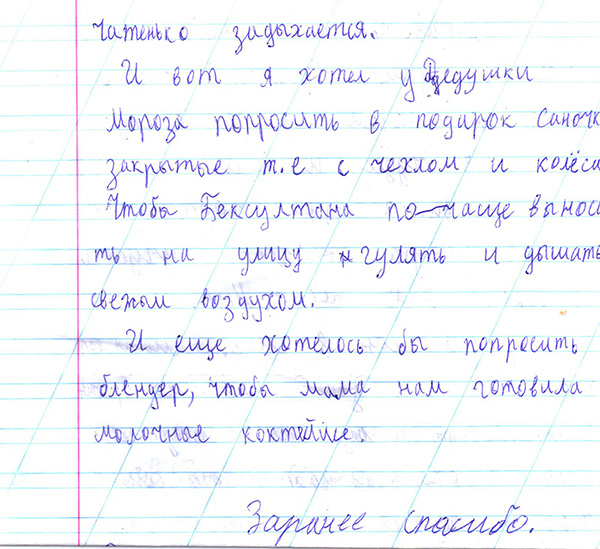 чатенько задыхается.
И вот я хотел у Дедушки
Мороза попросить в подарок саночк
закрытые т.е с чехлом и колёса
Чтобы Бексултана по-чаще выноси
ть на улицу гулять и дышать
свежым воздухом.
И еще хотелось бы попросить
блендер, чтобы мама нам готовила
молочные
Заранее спасибо.